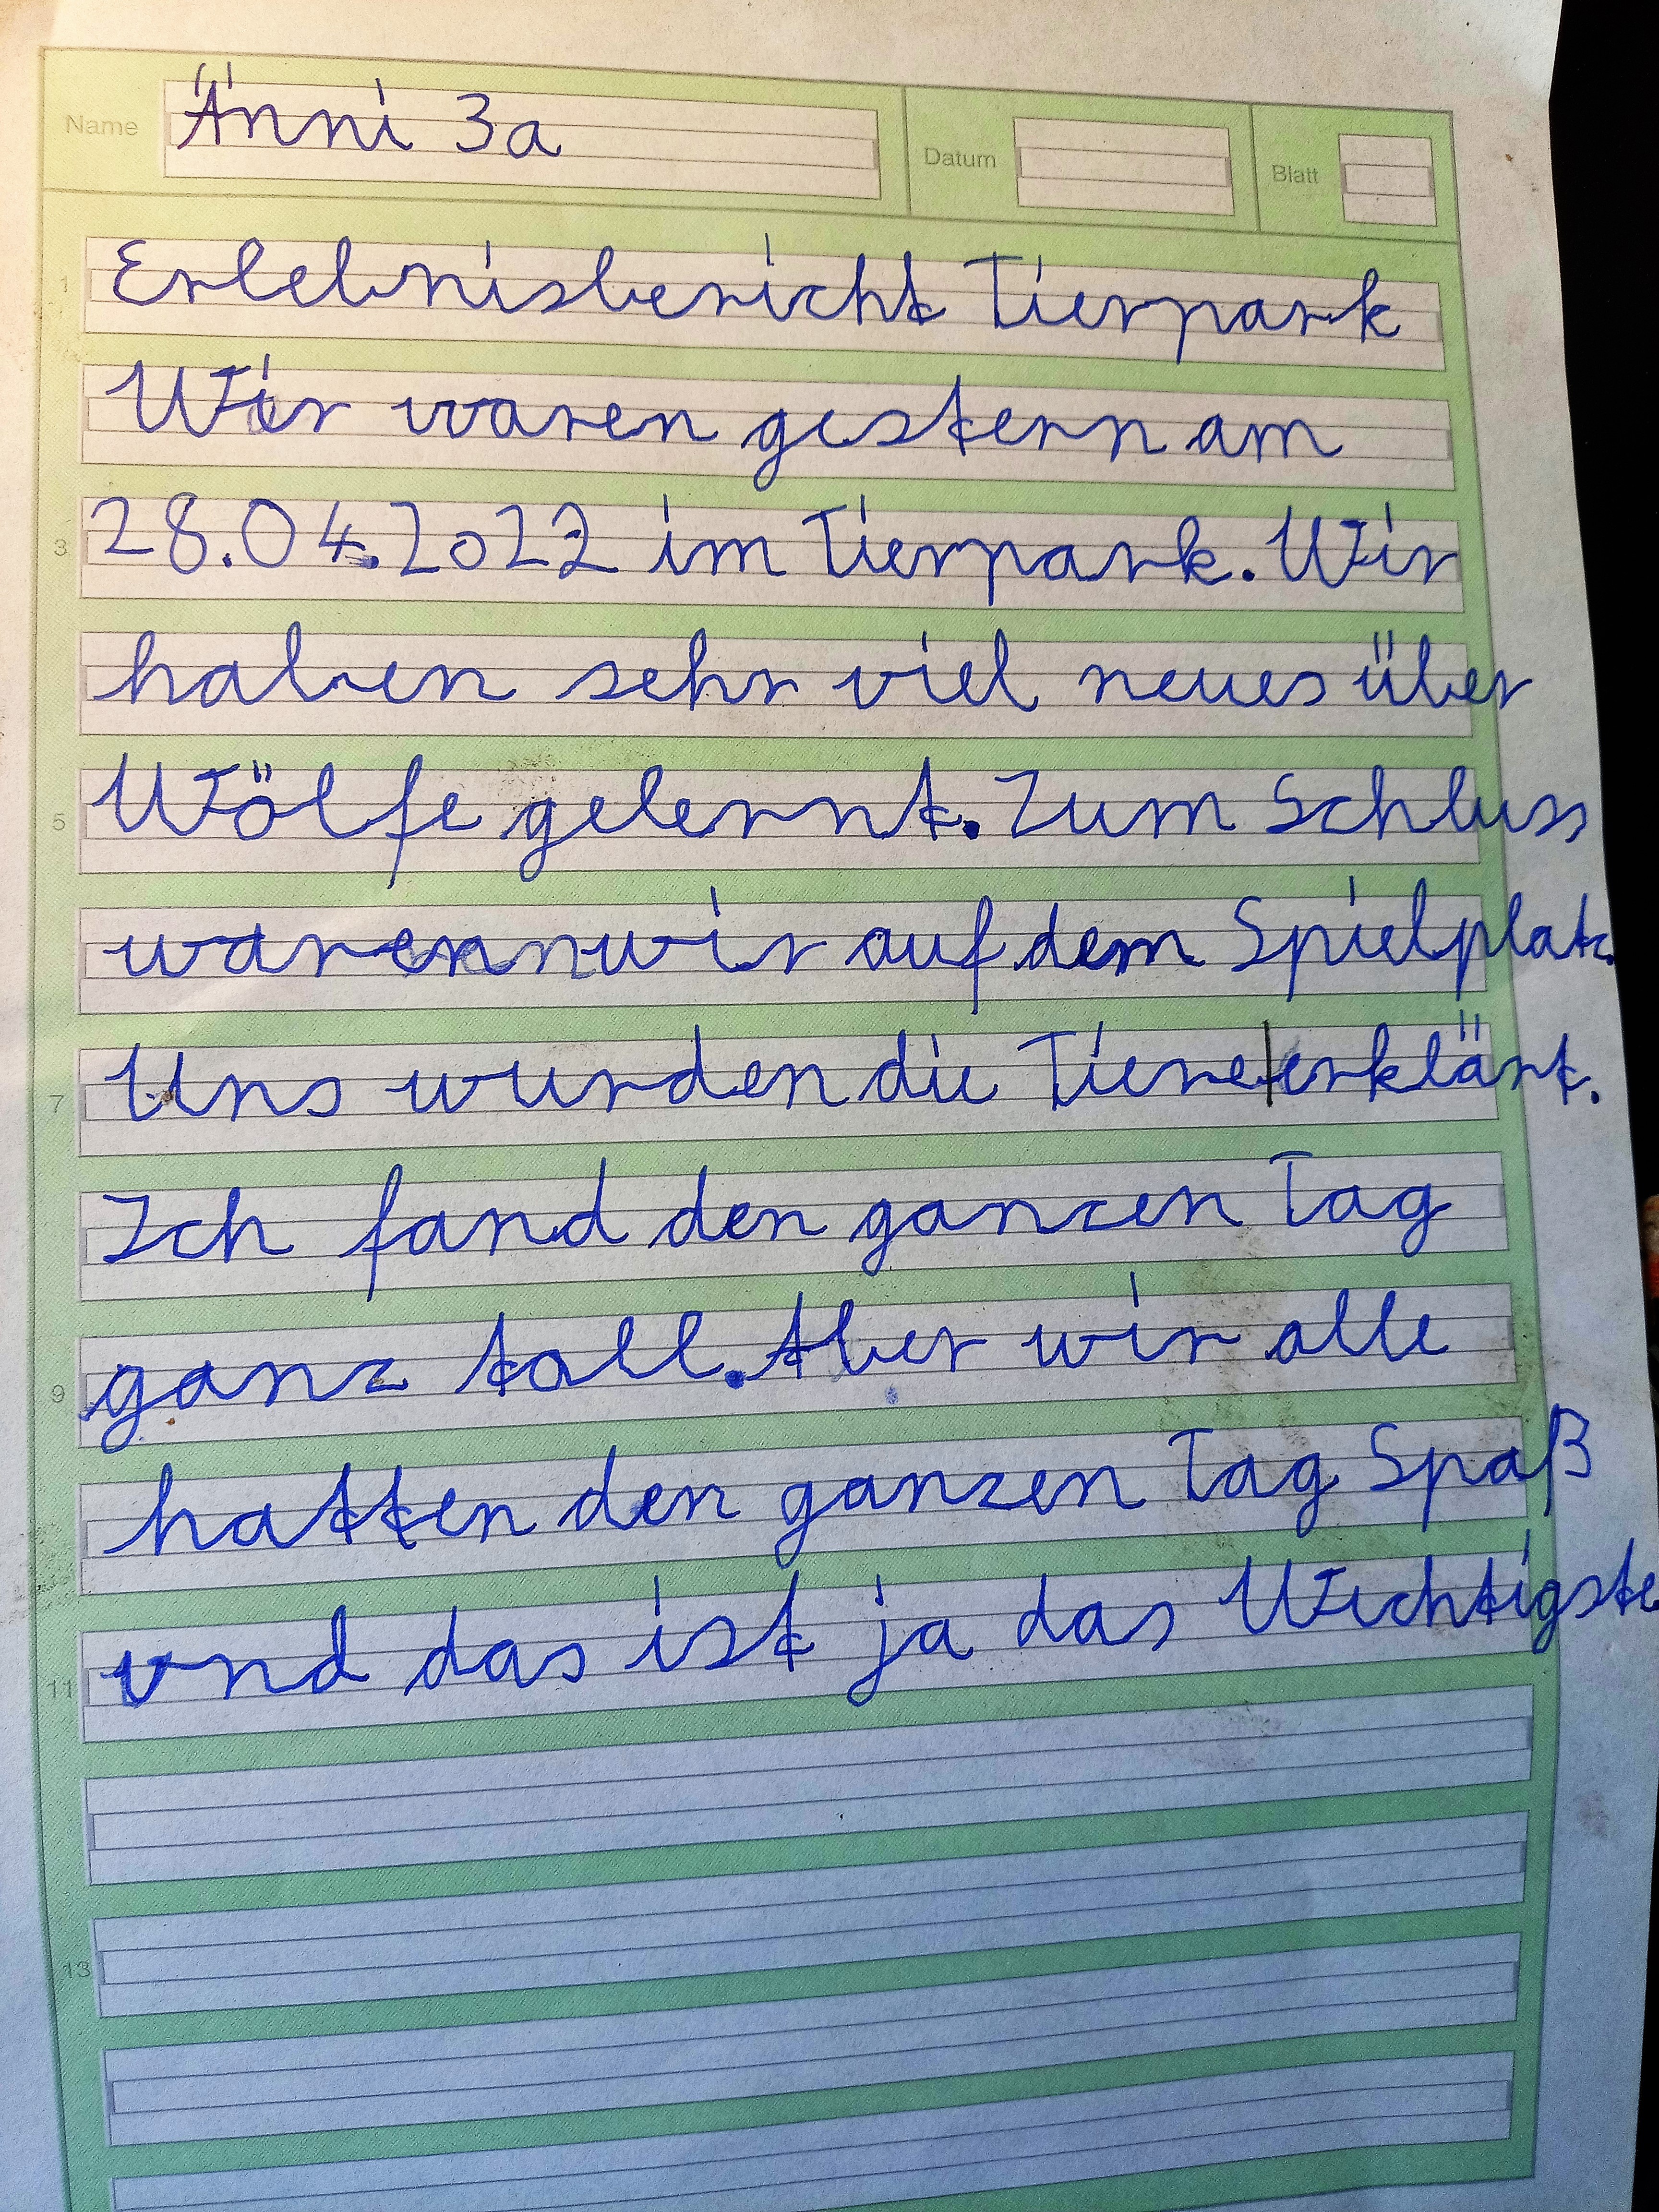 Name Änni 3a Datum Blatt
1 Erlebnisbericht Tierpark
Wir waren gestern am
3 28.04.2022 im Tierpark. Wir
haben sehr viel neues über
5 Wölfe gelernt. Zum Schluss
waren wir auf dem Spielplatz.
7 Uns wurden die Tiere|erklärt.
Ich fand den ganzen Tag
9 ganz toll. Aber wir alle
hatten den ganzen Tag Spaß
11 und das ist ja das Wichtigste
13